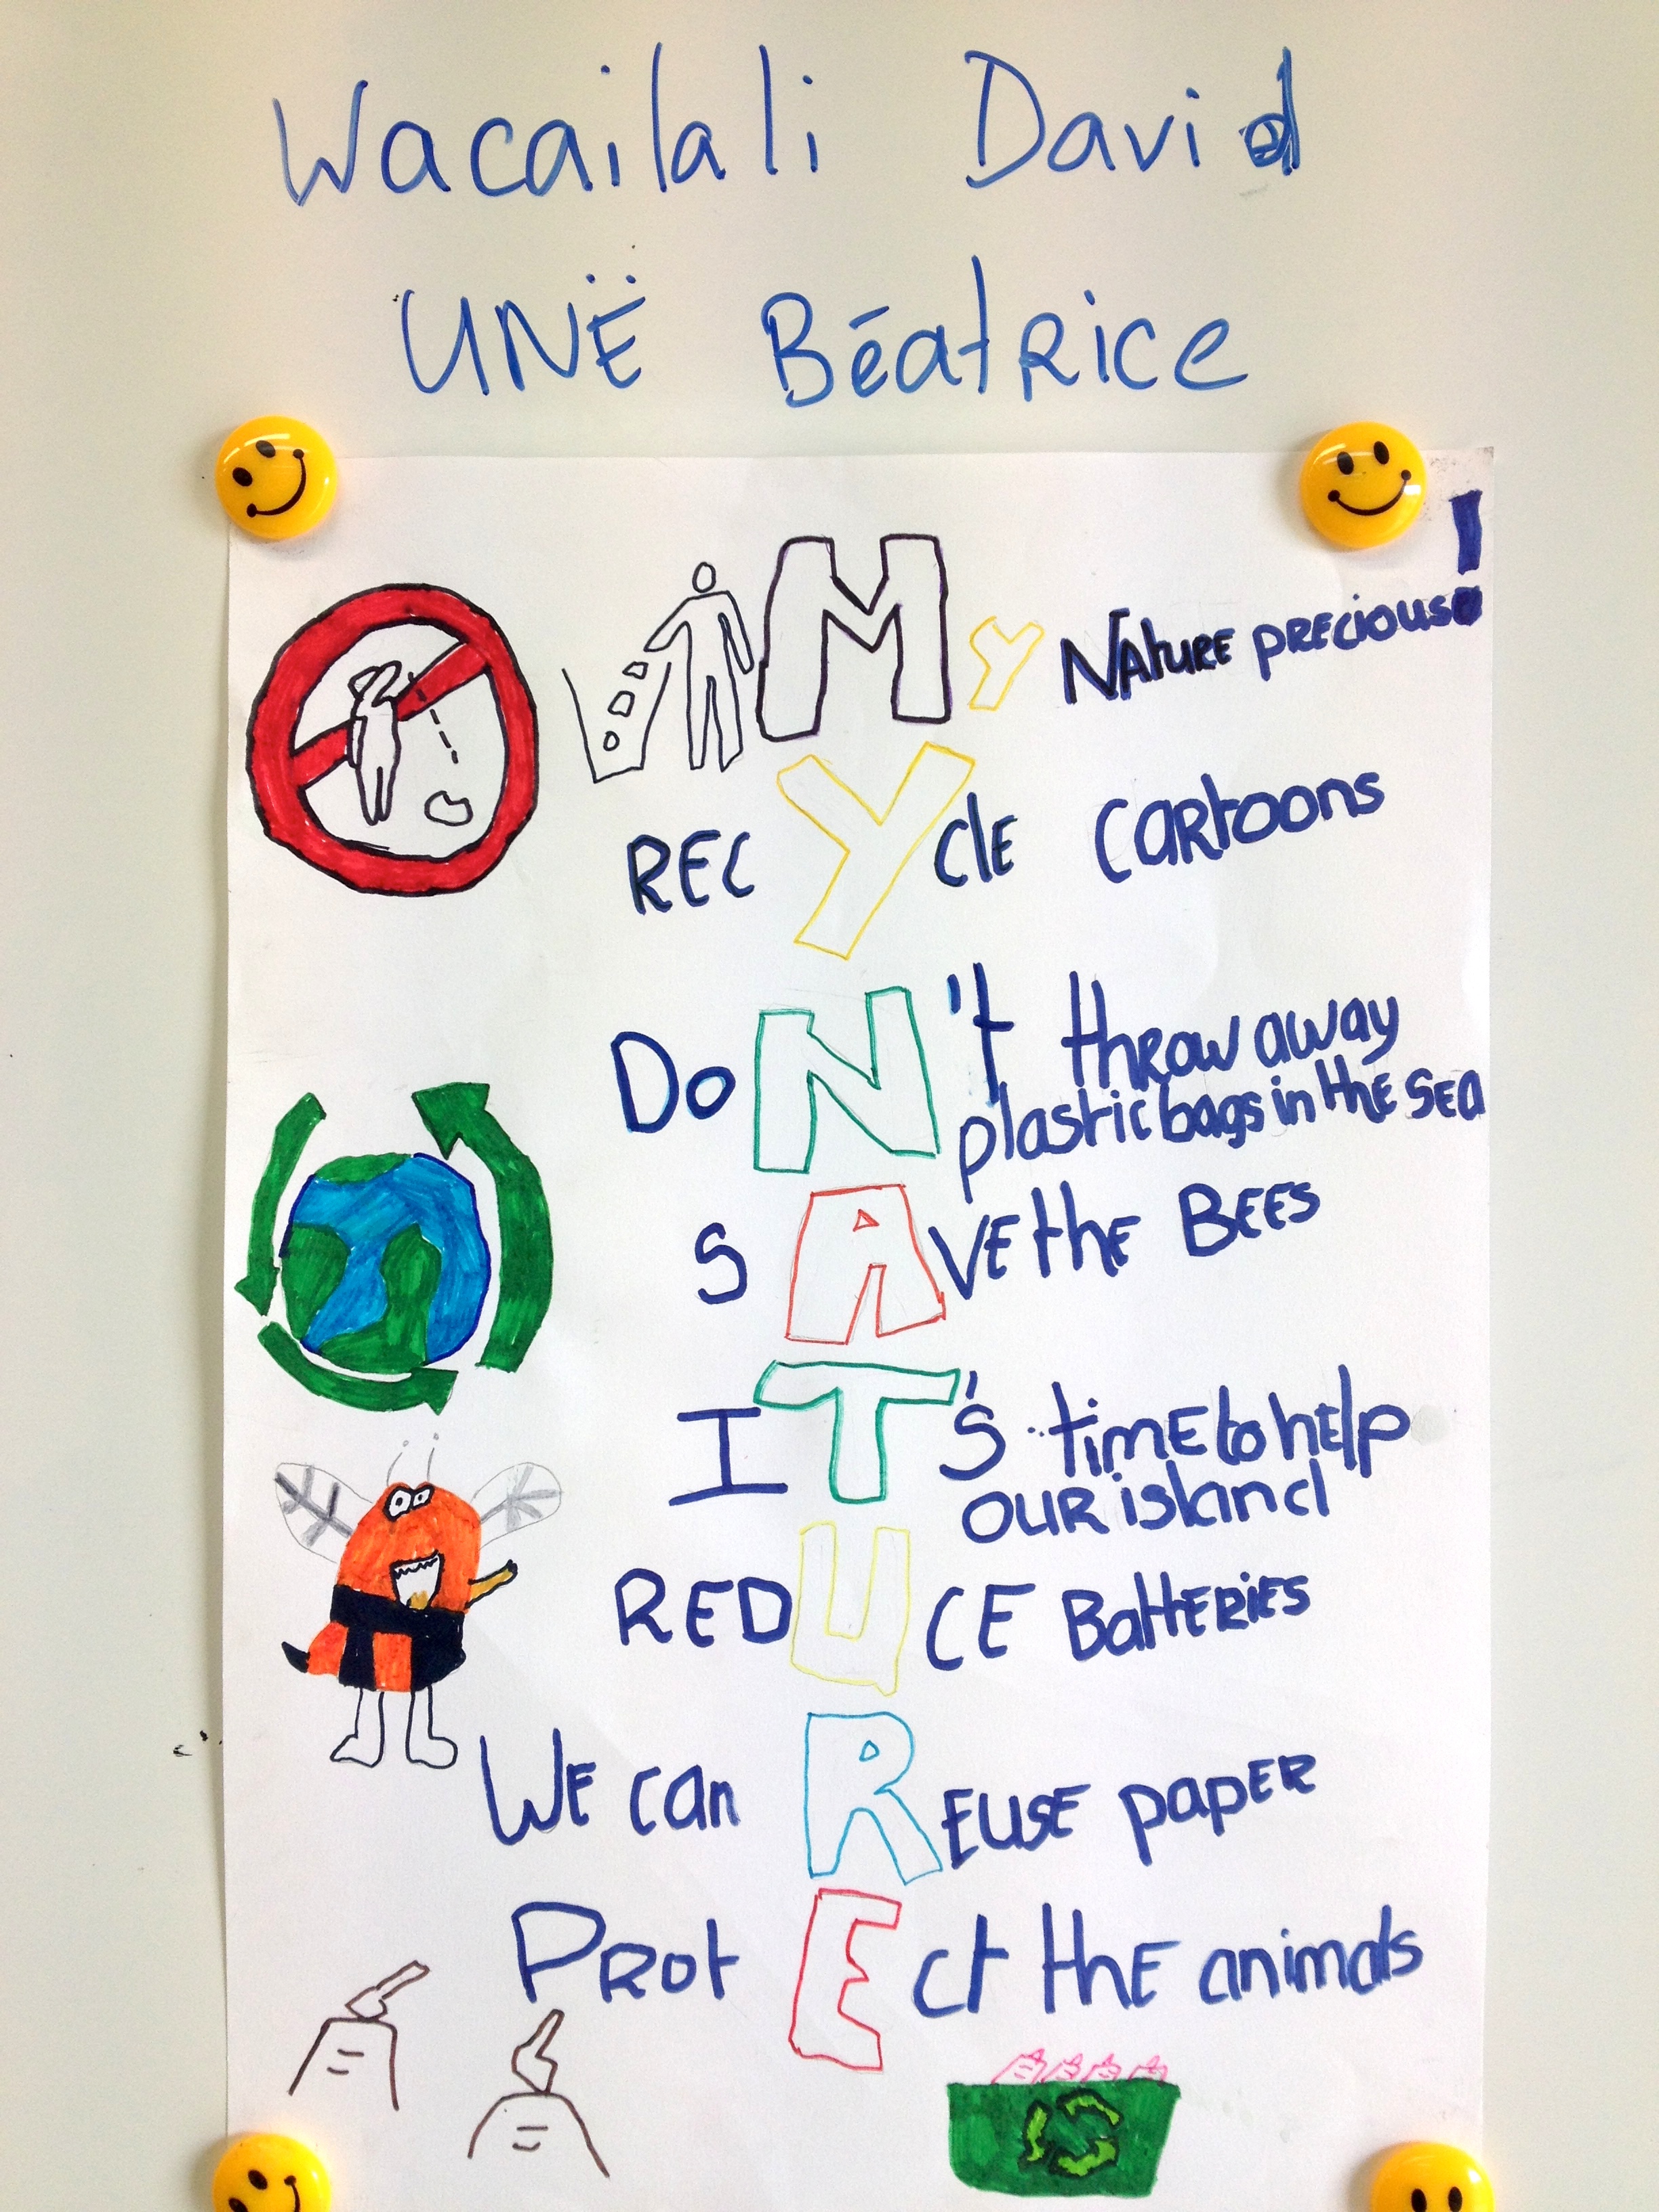 Wacailali David
UNË Béatrice
My Nature precious!
RECYclE cartoons
DoN't throw away
plastic bags in the sea
sAVE the BEES
IT's time to help
our island
REDUCE Batteries
WE can REUSE paper
ProtEct the animals